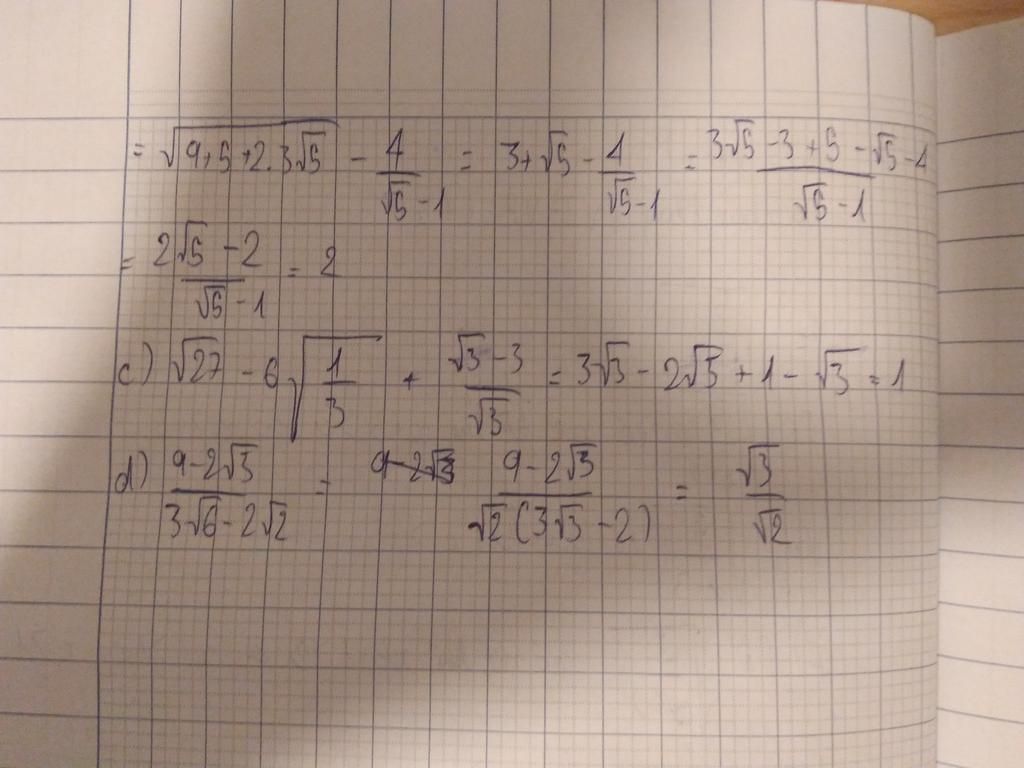 = √(9+5+2.3√5) - 4/(√5-1) = 3+√5 - 4/(√5-1) = (3√5-3+5-√5-4)/(√5-1)
= (2√5-2)/(√5-1) = 2
c) √27 - 6√(1/3) + (√3-3)/√3 = 3√3 - 2√3 + 1 - √3 = 1
d) (9-2√3)/(3√6-2√2) = (9-2√3)/(√2(3√3-2)) = √3/√2